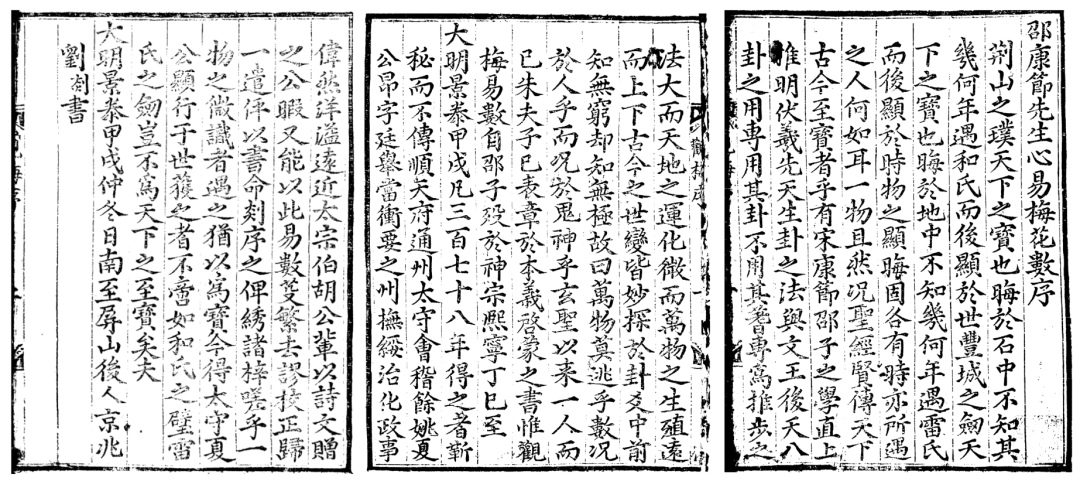 邵康節先生心易梅花數序
荆山之璞天下之寶也晦於石中不知其
幾何年遇和氏而後顯於世豐城之劍天
下之寶也晦於地中不知幾何年遇雷氏
而後顯於時物之顯晦固各有時亦所遇
之人何如耳一物且然况聖經賢傳天下
古今至寶者乎有宋康節邵子之學直上
推明伏羲先天生卦之法與文王後天八
卦之用專用其卦不用其蓍專寫推步之
法大而天地之運化微而萬物之生殖遠
而上下古今之世變皆妙探於卦爻中前
知無窮却知無極故曰萬物莫逃乎數况
於人乎而况於鬼神乎玄聖以来一人而
已朱夫子已表章於本義啓蒙之書惟觀
梅易數自邵子殁於神宗熙寧丁巳至
大明景泰甲戌凡三百七十八年得之者靳
秘而不傳順天府通州太守會稽餘姚夏
公昂字廷舉當衝要之州撫綏治化政事
偉然洋溢遠近太宗伯胡公輩以詩文贈
之公暇又能以此易數芟繁去謬校正歸
一遣伻以書命剡序之俾綉諸梓嗟乎一
物之微識者遇之猶以寫寶今得太守夏
公顯行于世獲之者不啻如和氏之璧雷
氏之劍豈不寫天下之至寶矣夫
大明景泰甲戌仲冬日南至屏山後人京兆
劉剡書